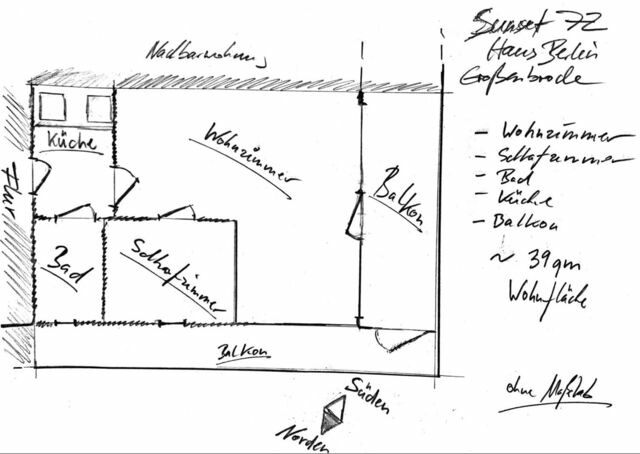 Nachbarwohnung
Sunset 72
Haus Berlin
Großenbrode
Küche
Wohnzimmer
Flur
Balkon
Bad
Schlafzimmer
Balkon
- Wohnzimmer
- Schlafzimmer
- Bad
- Küche
- Balkon
~ 39 qm
Wohnfläche
Süden
Norden
ohne Maßstab